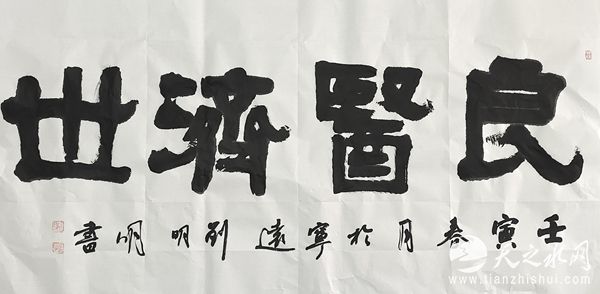 良醫濟世
壬寅春月於寧遠刘明明書
天之水网
www.tianzhishui.com